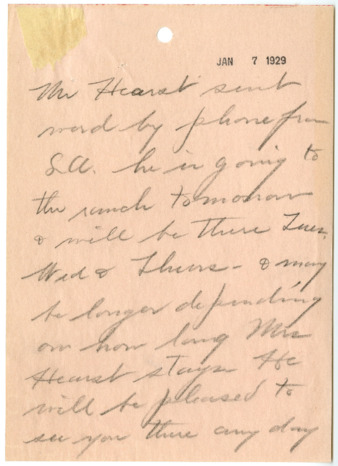 JAN 7 1929
Mr Hearst sent
word by phone from
L.A. he is going to
the ranch tomorrow
& will be there Tues,
Wed & Thurs - & may
be longer depending
on how long Mrs
Hearst stays. He
will be pleased to
see you there any day